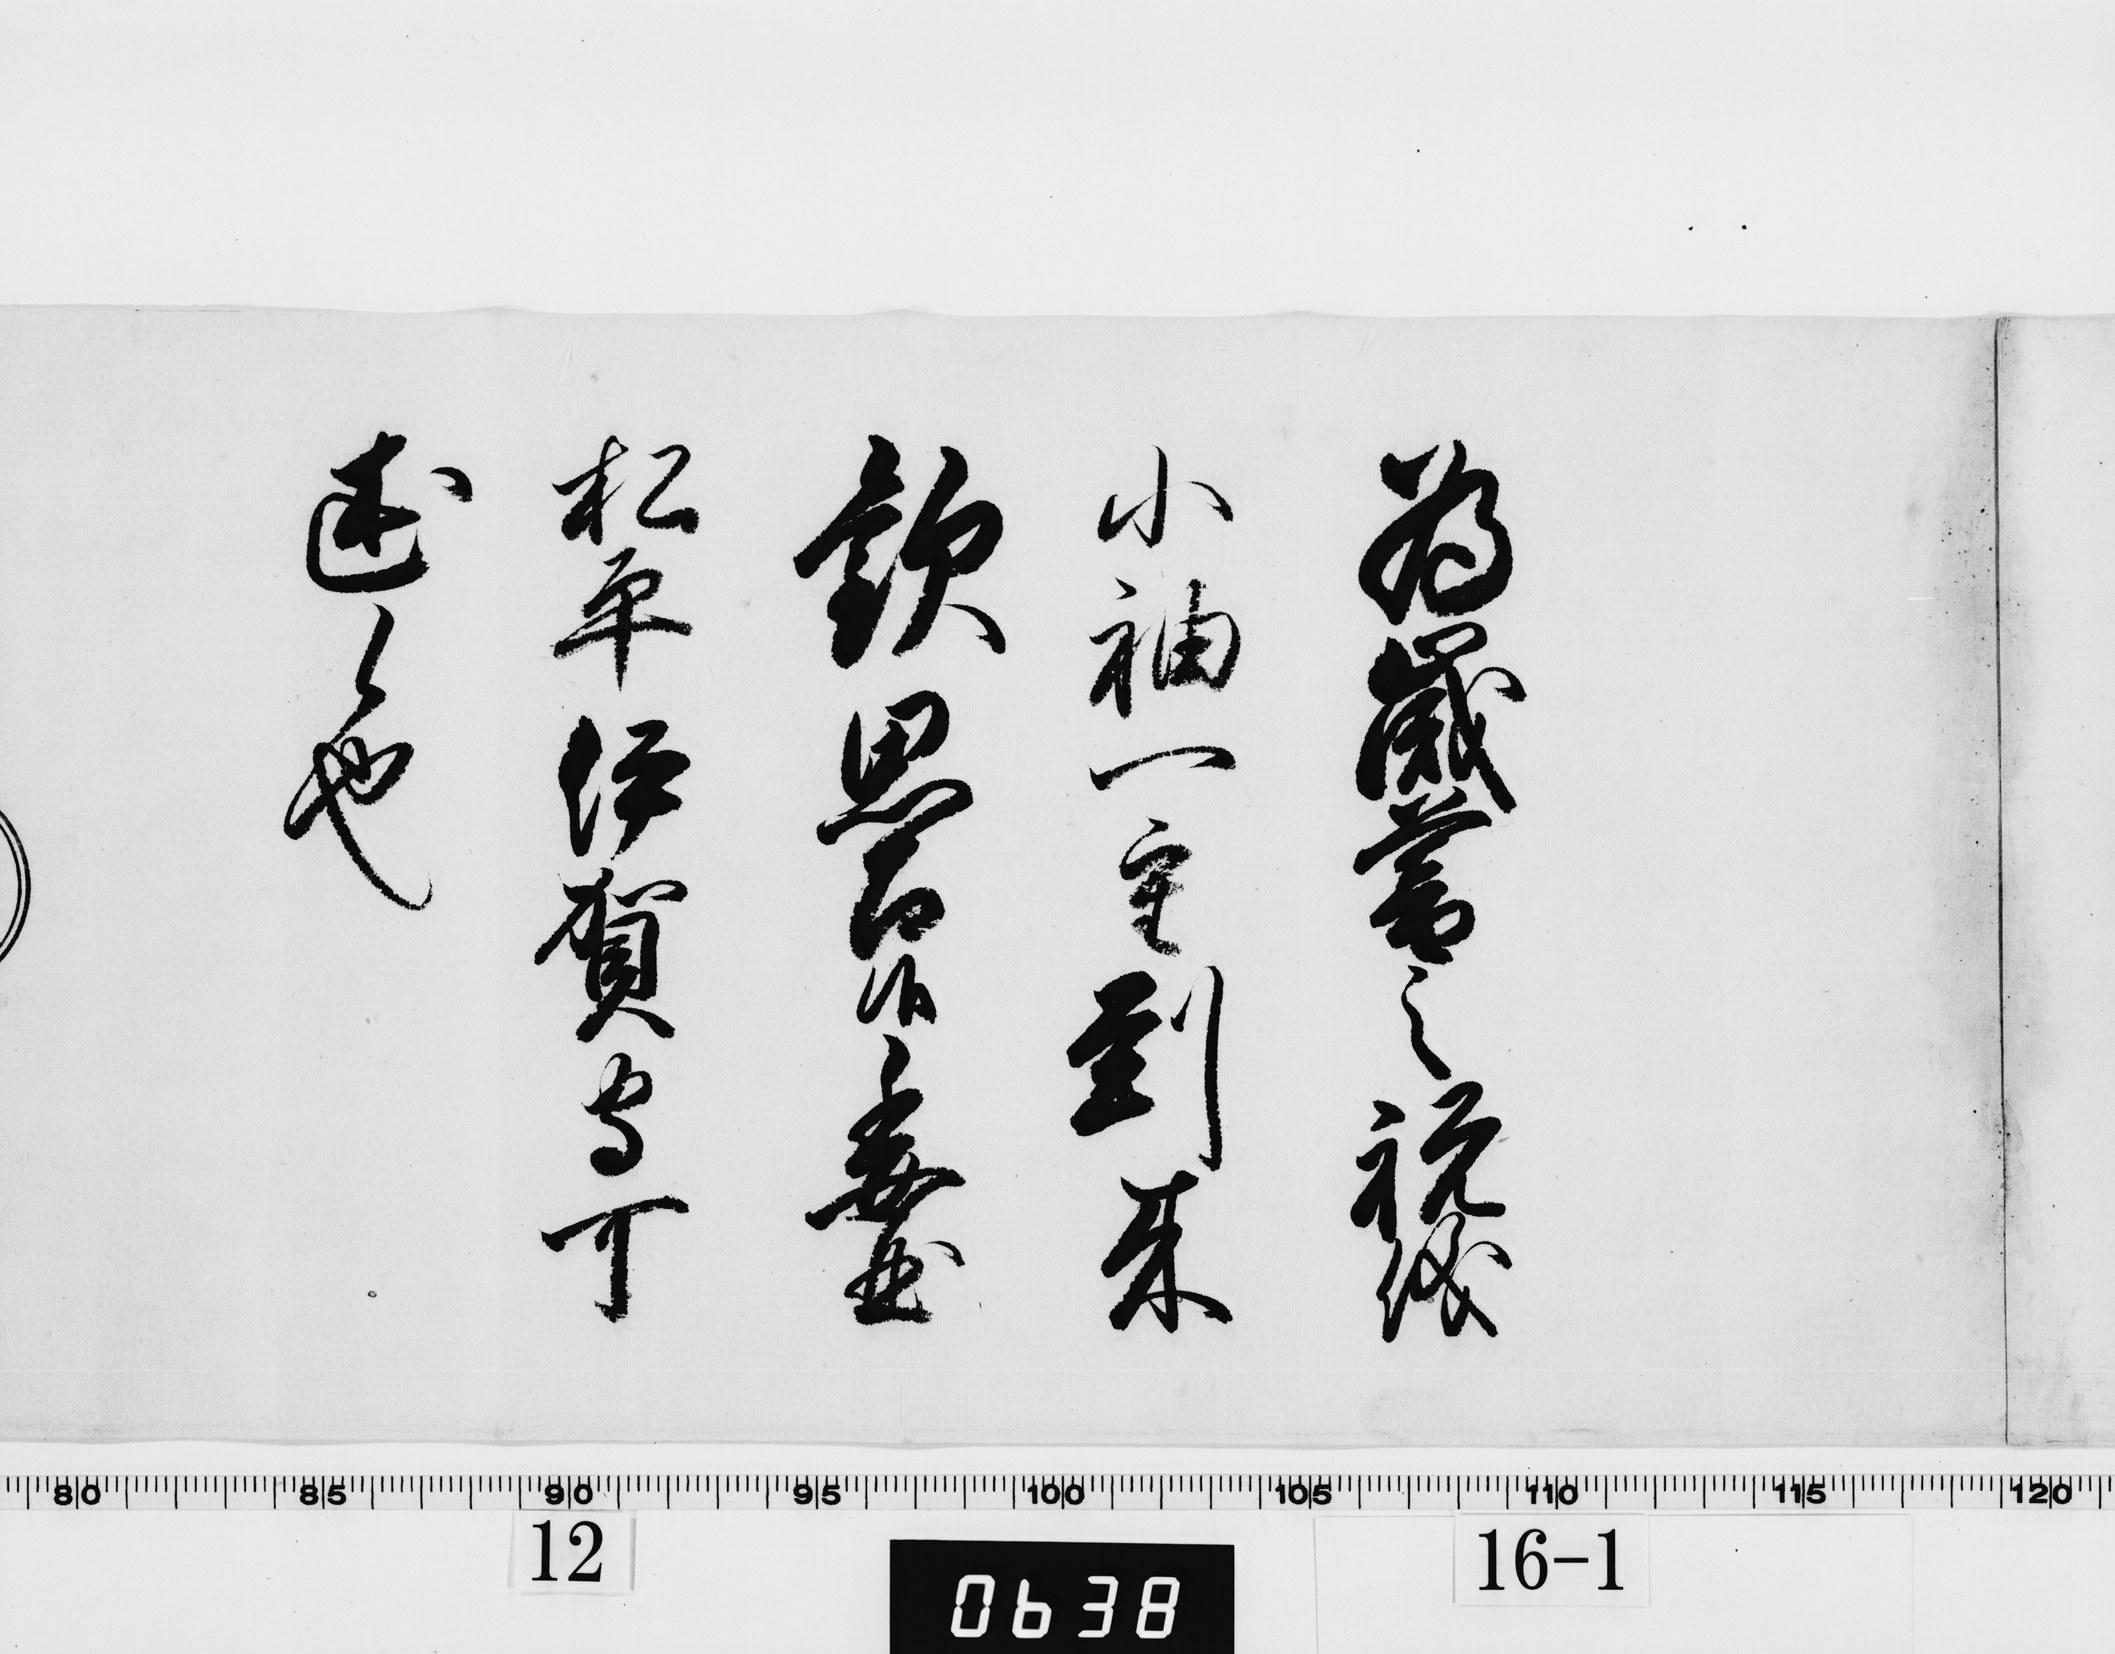 為歳暮之祝儀
小袖一重到来
歓思召候委曲
松平伊賀守可
述候也
80 85 90 95 100 105 110 115 120
12
0638
16-1